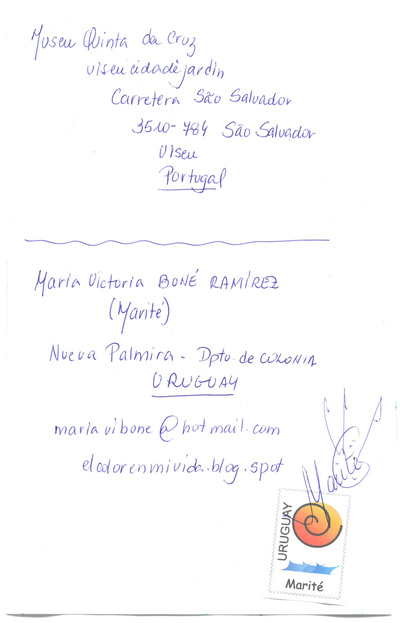 Museu Quinta da Cruz
viseucidadejardin
Carretera São Salvador
3510-784 São Salvador
Viseu
Portugal
María Victoria BONÉ RAMÍREZ
(Marité)
Nueva Palmira - Dpto. de COLONIA
URUGUAY
mariavibone@hotmail.com
elcolorenmivida.blog.spot
Marité
URUGUAY
Marité